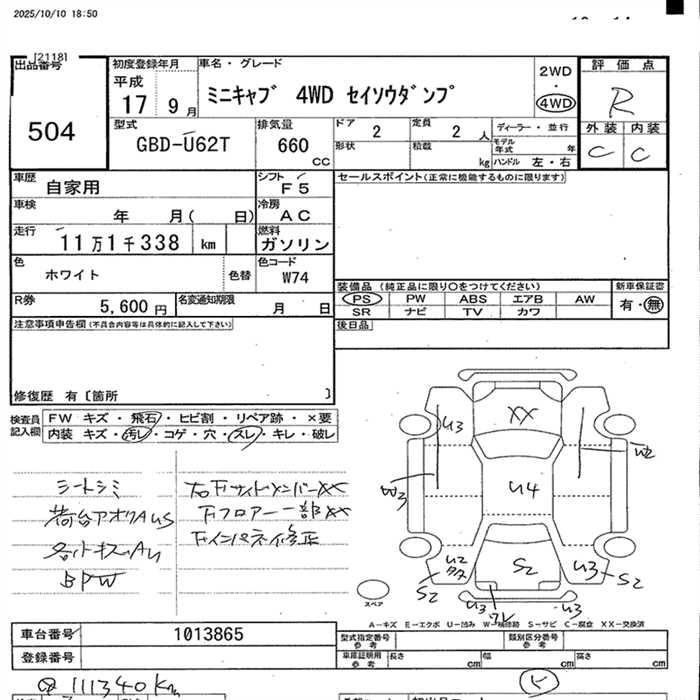 2025/10/10 18:50
[2118]
出品番号 504
初度登録年月 平成 17 9月
車名・グレード ミニキャブ 4WD セイソウダンプ
2WD ・ 4WD
評価点 R
外装 内装
C C
型式 GBD-U62T
排気量 660 CC
ドア 2
定員 2 人
形状
積載 kg
ディーラー・並行
モデル年式 年
ハンドル 左・右
車歴 自家用
シフト F5
セールスポイント(正常に機能するものに限ります)
車検 年 月( 日)
冷房 AC
走行 11万1千338 km
燃料 ガソリン
色 ホワイト 色替
色コード W74
R券 5,600円
名変通知期限 月 日
装備品 (純正品に限り○をつけてください)
新車保証書
PS PW ABS エアB AW
SR ナビ TV カワ
有・無
後日品
注意事項申告欄(不具合内容等は具体的に記入して下さい)
修復歴 有〔箇所 〕
検査員記入欄
FW キズ・飛石・ヒビ割・リペア跡・×要
内装 キズ・汚レ・コゲ・穴・スレ・キレ・破レ
シートシミ
荷台アオリAUS
BPW
右下サイドメンバーXX
下フロアー一部XX
下インパネイ修正
XX
U3
U2
W3
U4
U2
S2
S2
U3
S2
U3
U3
スペア
A-キズ E-エクボ U-凹み W-補修跡 S-サビ C-腐食 XX-交換済
車台番号 1013865
登録番号
型式指定番号 参考
類別区分番号 参考
車庫証明用 参考
長さ cm
幅 cm
高さ cm
111340Km